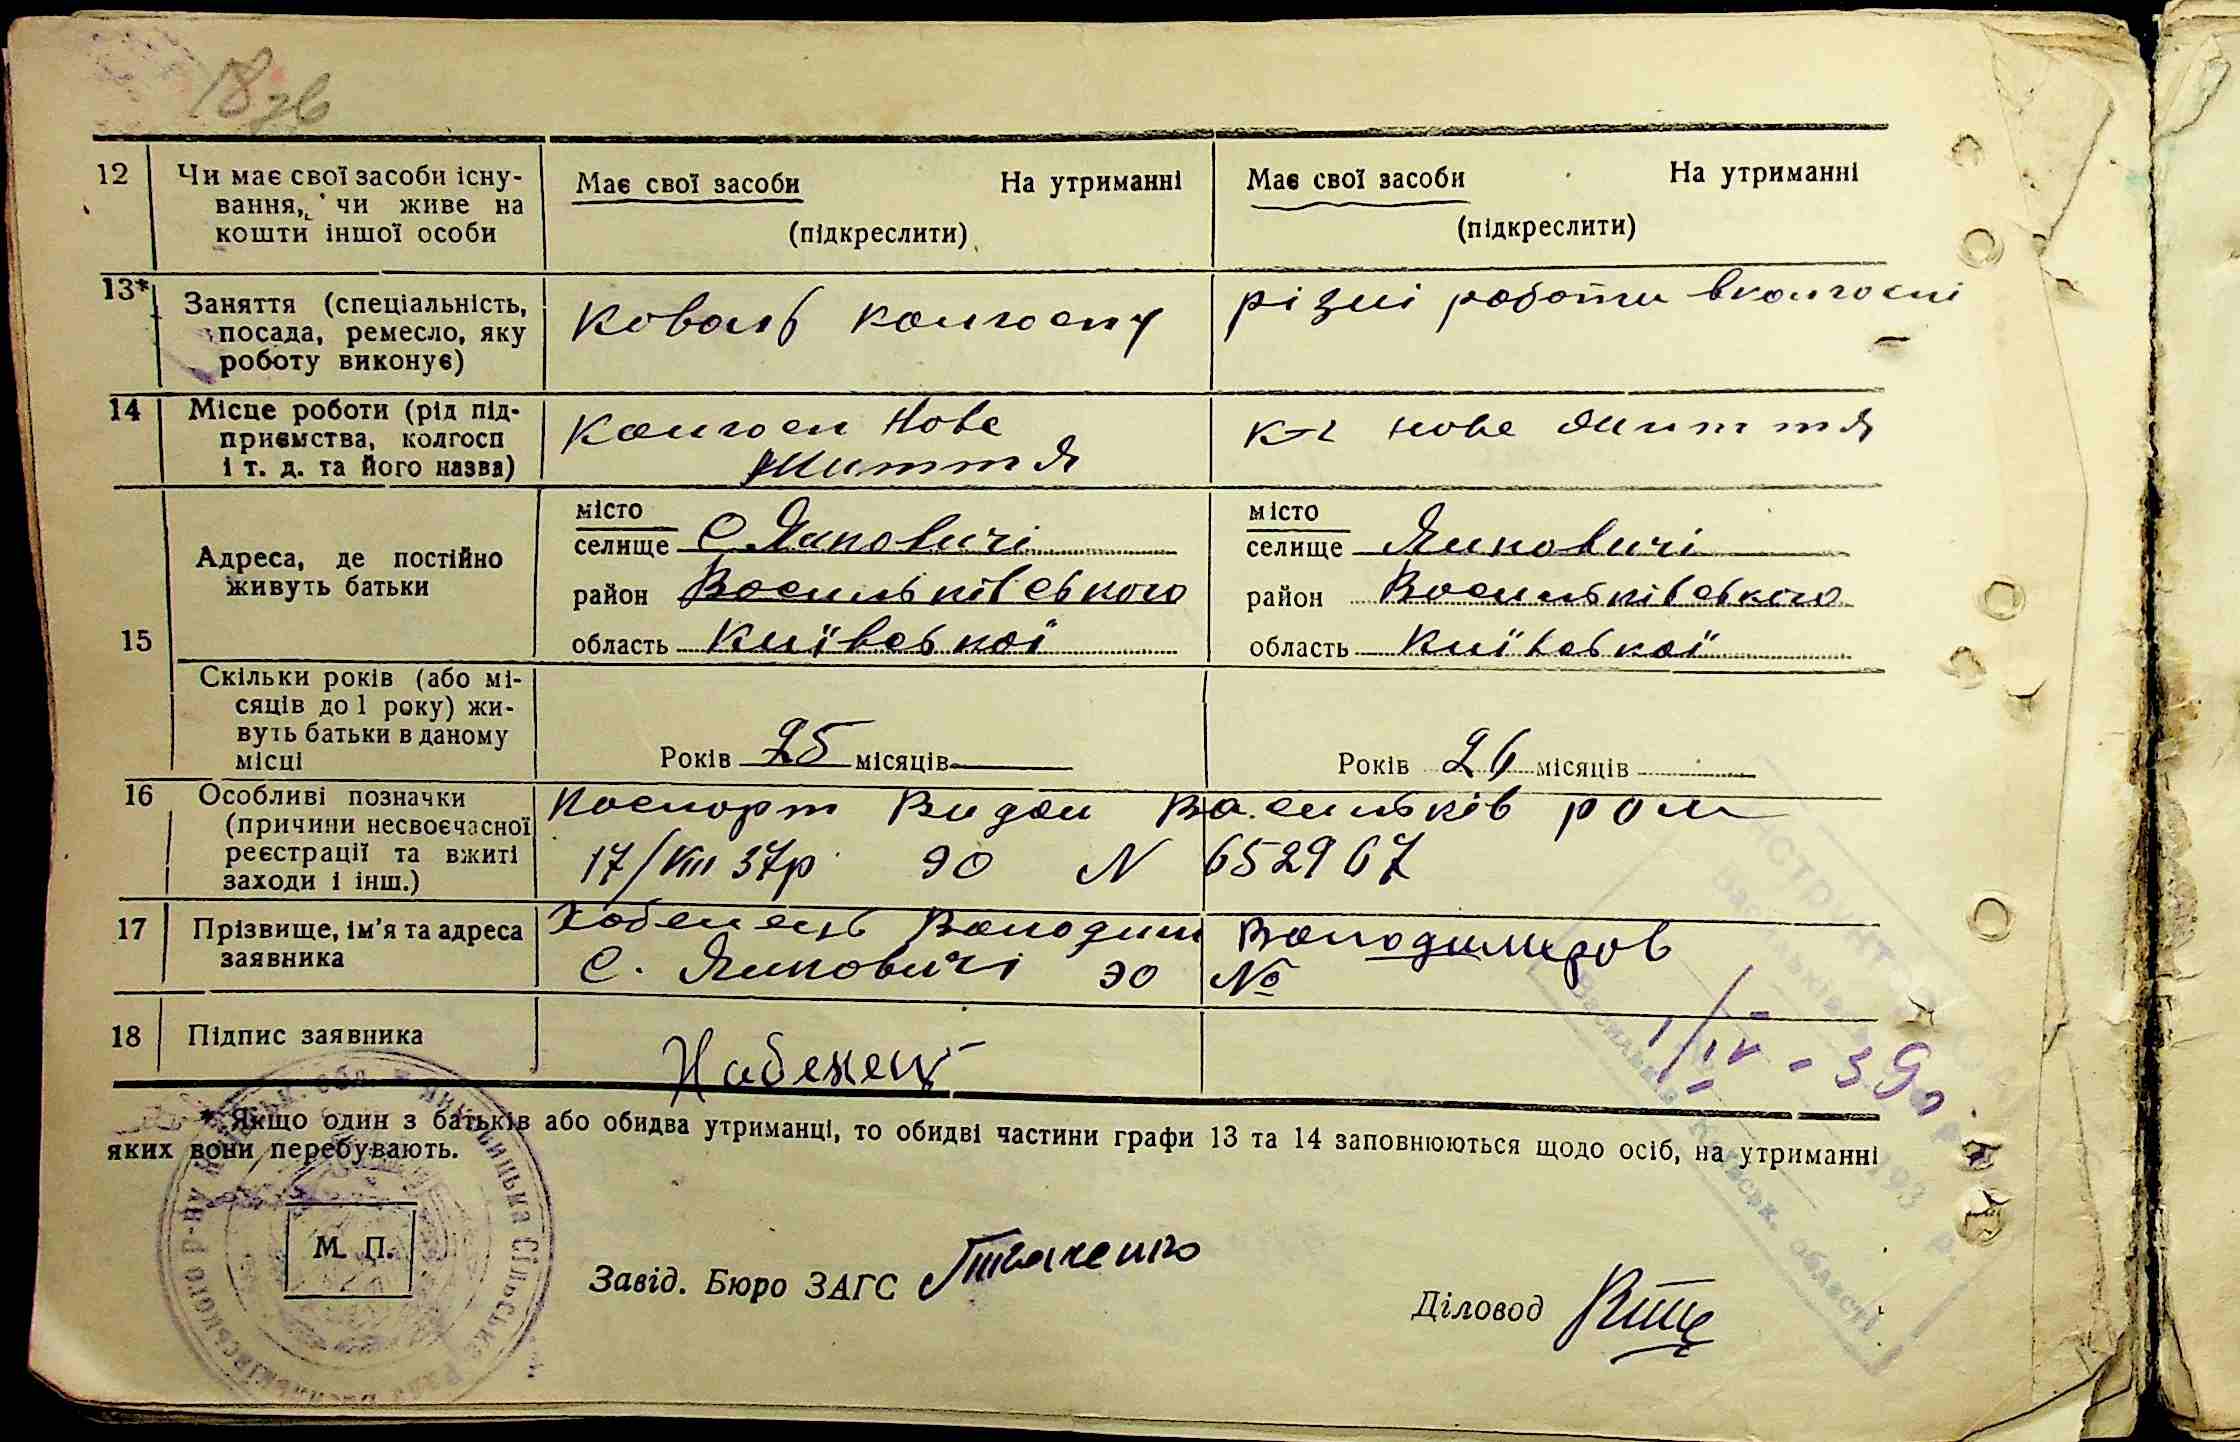 18 зв
12 Чи має свої засоби існу-
вання, чи живе на
кошти іншої особи
Має свої засоби На утриманні
(підкреслити)
Має свої засоби На утриманні
(підкреслити)
13* Заняття (спеціальність,
посада, ремесло, яку
роботу виконує)
Коваль колгоспу
різні роботи вколгоспі
14 Місце роботи (рід під-
приємства, колгосп
і т. д. та його назва)
Колгосп Нове
життя
к-г нове життя
15 Адреса, де постійно
живуть батьки
місто
селище С Яцковичі
район Васильківського
область Київської
місто
селище Яцковичі
район Васильківського
область Київської
Скільки років (або мі-
сяців до 1 року) жи-
вуть батьки в даному
місці
Років 25 місяців
Років 26 місяців
16 Особливі позначки
(причини несвоєчасної
реєстрації та вжиті
заходи і інш.)
Паспорт Видан Васильків ром
17/VIII 37р ЭО N 652967
17 Прізвище, ім'я та адреса
заявника
Хабенець Володим Володимиров
С. Яцковичі ЭО №
18 Підпис заявника
Хабенець
1/IV - 39р.
* Якщо один з батьків або обидва утриманці, то обидві частини графи 13 та 14 заповнюються щодо осіб, на утриманні
яких вони перебувають.
М. П.
Завід. Бюро ЗАГС Ткаченко
Діловод
Сільська Рада Васильківського р-ну
Васильків Київськ. області
193 р.